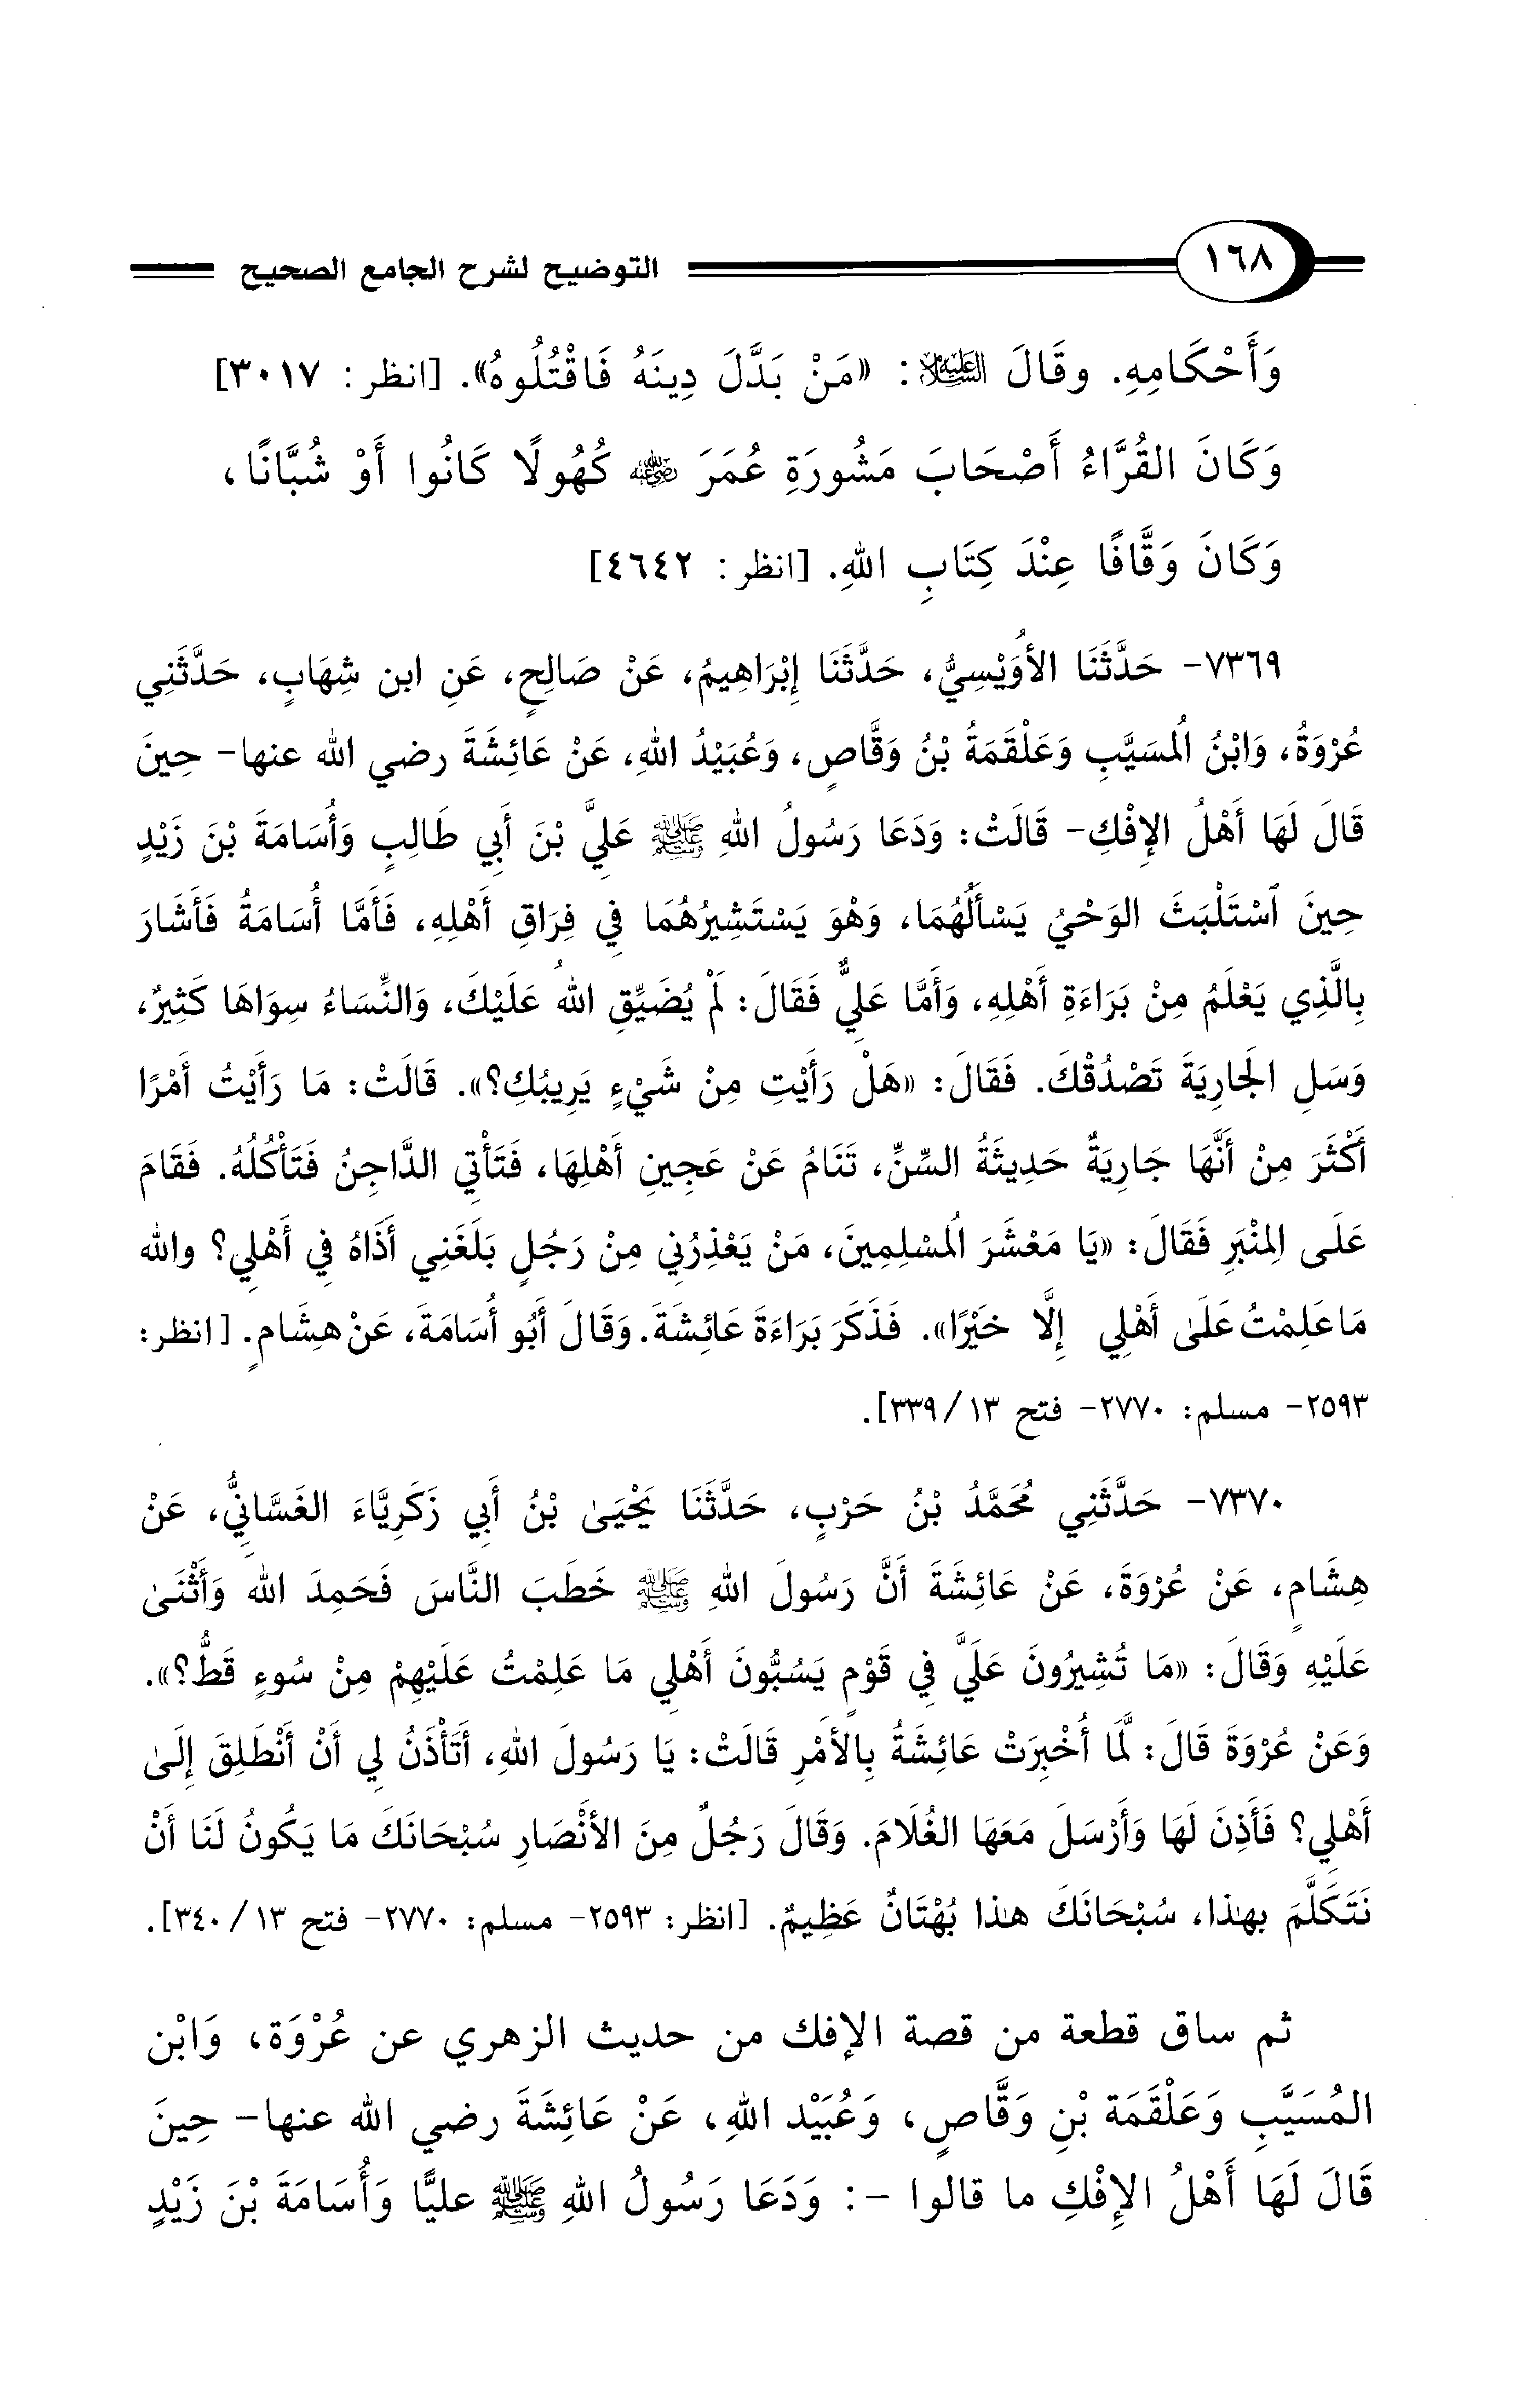 ١٦٨ التوضيح لشرح الجامع الصحيح
وَأَحْكَامِهِ. وقَالَ عليه السلام: «مَنْ بَدَّلَ دِينَهُ فَاقْتُلُوهُ». [انظر: ٣٠١٧]
وَكَانَ القُرَّاءُ أَصْحَابَ مَشُورَةِ عُمَرَ رضي الله عنه كُهُولًا كَانُوا أَوْ شُبَّانًا،
وَكَانَ وَقَّافًا عِنْدَ كِتَابِ اللهِ. [انظر: ٤٦٤٢]
٧٣٦٩- حَدَّثَنَا الأُوَيْسِيُّ، حَدَّثَنَا إِبْرَاهِيمُ، عَنْ صَالِحٍ، عَنِ ابن شِهَابٍ، حَدَّثَنِي
عُرْوَةُ، وَابْنُ المُسَيَّبِ وَعَلْقَمَةُ بْنُ وَقَّاصٍ، وَعُبَيْدُ اللهِ، عَنْ عَائِشَةَ رضي الله عنها- حِينَ
قَالَ لَهَا أَهْلُ الإِفْكِ- قَالَتْ: وَدَعَا رَسُولُ اللهِ ﷺ عَلِيَّ بْنَ أَبِي طَالِبٍ وَأُسَامَةَ بْنَ زَيْدٍ
حِينَ ٱسْتَلْبَثَ الوَحْيُ يَسْأَلُهُمَا، وَهْوَ يَسْتَشِيرُهُمَا فِي فِرَاقِ أَهْلِهِ، فَأَمَّا أُسَامَةُ فَأَشَارَ
بِالَّذِي يَعْلَمُ مِنْ بَرَاءَةِ أَهْلِهِ، وَأَمَّا عَلِيٌّ فَقَالَ: لَمْ يُضَيِّقِ اللهُ عَلَيْكَ، وَالنِّسَاءُ سِوَاهَا كَثِيرٌ،
وَسَلِ الجَارِيَةَ تَصْدُقْكَ. فَقَالَ: «هَلْ رَأَيْتِ مِنْ شَيْءٍ يَرِيبُكِ؟». قَالَتْ: مَا رَأَيْتُ أَمْرًا
أَكْثَرَ مِنْ أَنَّهَا جَارِيَةٌ حَدِيثَةُ السِّنِّ، تَنَامُ عَنْ عَجِينِ أَهْلِهَا، فَتَأْتِي الدَّاجِنُ فَتَأْكُلُهُ. فَقَامَ
عَلَى المِنْبَرِ فَقَالَ: «يَا مَعْشَرَ المُسْلِمِينَ، مَنْ يَعْذِرُنِي مِنْ رَجُلٍ بَلَغَنِي أَذَاهُ فِي أَهْلِي؟ والله
مَا عَلِمْتُ عَلَىٰ أَهْلِي إِلَّا خَيْرًا». فَذَكَرَ بَرَاءَةَ عَائِشَةَ. وَقَالَ أَبُو أُسَامَةَ، عَنْ هِشَامٍ. [انظر:
٢٥٩٣- مسلم: ٢٧٧٠- فتح ١٣/ ٣٣٩].
٧٣٧٠- حَدَّثَنِي مُحَمَّدُ بْنُ حَرْبٍ، حَدَّثَنَا يَحْيَىٰ بْنُ أَبِي زَكَرِيَّاءَ الغَسَّانِيُّ، عَنْ
هِشَامٍ، عَنْ عُرْوَةَ، عَنْ عَائِشَةَ أَنَّ رَسُولَ اللهِ ﷺ خَطَبَ النَّاسَ فَحَمِدَ اللهَ وَأَثْنَىٰ
عَلَيْهِ وَقَالَ: «مَا تُشِيرُونَ عَلَيَّ فِي قَوْمٍ يَسُبُّونَ أَهْلِي مَا عَلِمْتُ عَلَيْهِمْ مِنْ سُوءٍ قَطُّ؟».
وَعَنْ عُرْوَةَ قَالَ: لَمَّا أُخْبِرَتْ عَائِشَةُ بِالأَمْرِ قَالَتْ: يَا رَسُولَ اللهِ، أَتَأْذَنُ لِي أَنْ أَنْطَلِقَ إِلَىٰ
أَهْلِي؟ فَأَذِنَ لَهَا وَأَرْسَلَ مَعَهَا الغُلَامَ. وَقَالَ رَجُلٌ مِنَ الأَنْصَارِ سُبْحَانَكَ مَا يَكُونُ لَنَا أَنْ
نَتَكَلَّمَ بهذا، سُبْحَانَكَ هذا بُهْتَانٌ عَظِيمٌ. [انظر: ٢٥٩٣- مسلم: ٢٧٧٠- فتح ١٣/ ٣٤٠].
ثم ساق قطعة من قصة الإفك من حديث الزهري عن عُرْوَة، وَابْن
المُسَيَّبِ وَعَلْقَمَة بْنِ وَقَّاصٍ، وَعُبَيْد اللهِ، عَنْ عَائِشَةَ رضي الله عنها- حِينَ
قَالَ لَهَا أَهْلُ الإِفْكِ ما قالوا -: وَدَعَا رَسُولُ اللهِ ﷺ عليًّا وَأُسَامَةَ بْنَ زَيْدٍ